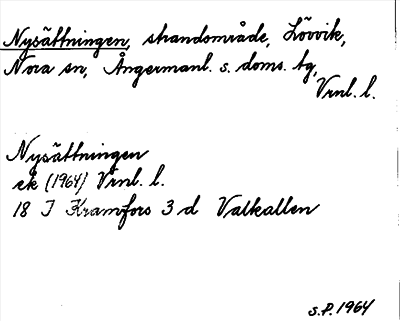 Nysättningen, strandområde, Lövvik,
Nora sn, Ångermanl. s. doms. tg,
Vrnl. l.
Nysättningen
ek (1964) Vrnl. l.
18 I Kramfors 3 d Valkallen
S.P. 1964